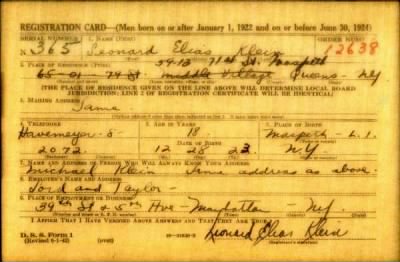 REGISTRATION CARD—(Men born on or after January 1, 1922 and on or before June 30, 1924)
SERIAL NUMBER 1. NAME (Print)
N 365 Leonard Elias Klein 12638
59-13 71st St. Maspeth
2. PLACE OF RESIDENCE (Print)
65-01-74 St Middle Village Queens - NY
(THE PLACE OF RESIDENCE GIVEN ON THE LINE ABOVE WILL DETERMINE LOCAL BOARD
JURISDICTION; LINE 2 OF REGISTRATION CERTIFICATE WILL BE IDENTICAL)
3. MAILING ADDRESS
Same
4. TELEPHONE 5. AGE IN YEARS 6. PLACE OF BIRTH
Havemeyer-5- 18 Maspeth - L.I.
DATE OF BIRTH
2072 12 28 23 N.Y
7. NAME AND ADDRESS OF PERSON WHO WILL ALWAYS KNOW YOUR ADDRESS
Michael Klein Same address as above
8. EMPLOYER'S NAME AND ADDRESS
Lord and Taylor -
9. PLACE OF EMPLOYMENT OR BUSINESS
39th St & 5th Ave - Manhattan - NY
I AFFIRM THAT I HAVE VERIFIED ABOVE ANSWERS AND THAT THEY ARE TRUE.
D. S. S. Form 1
(Revised 6-1-42) (over)
Leonard Elias Klein